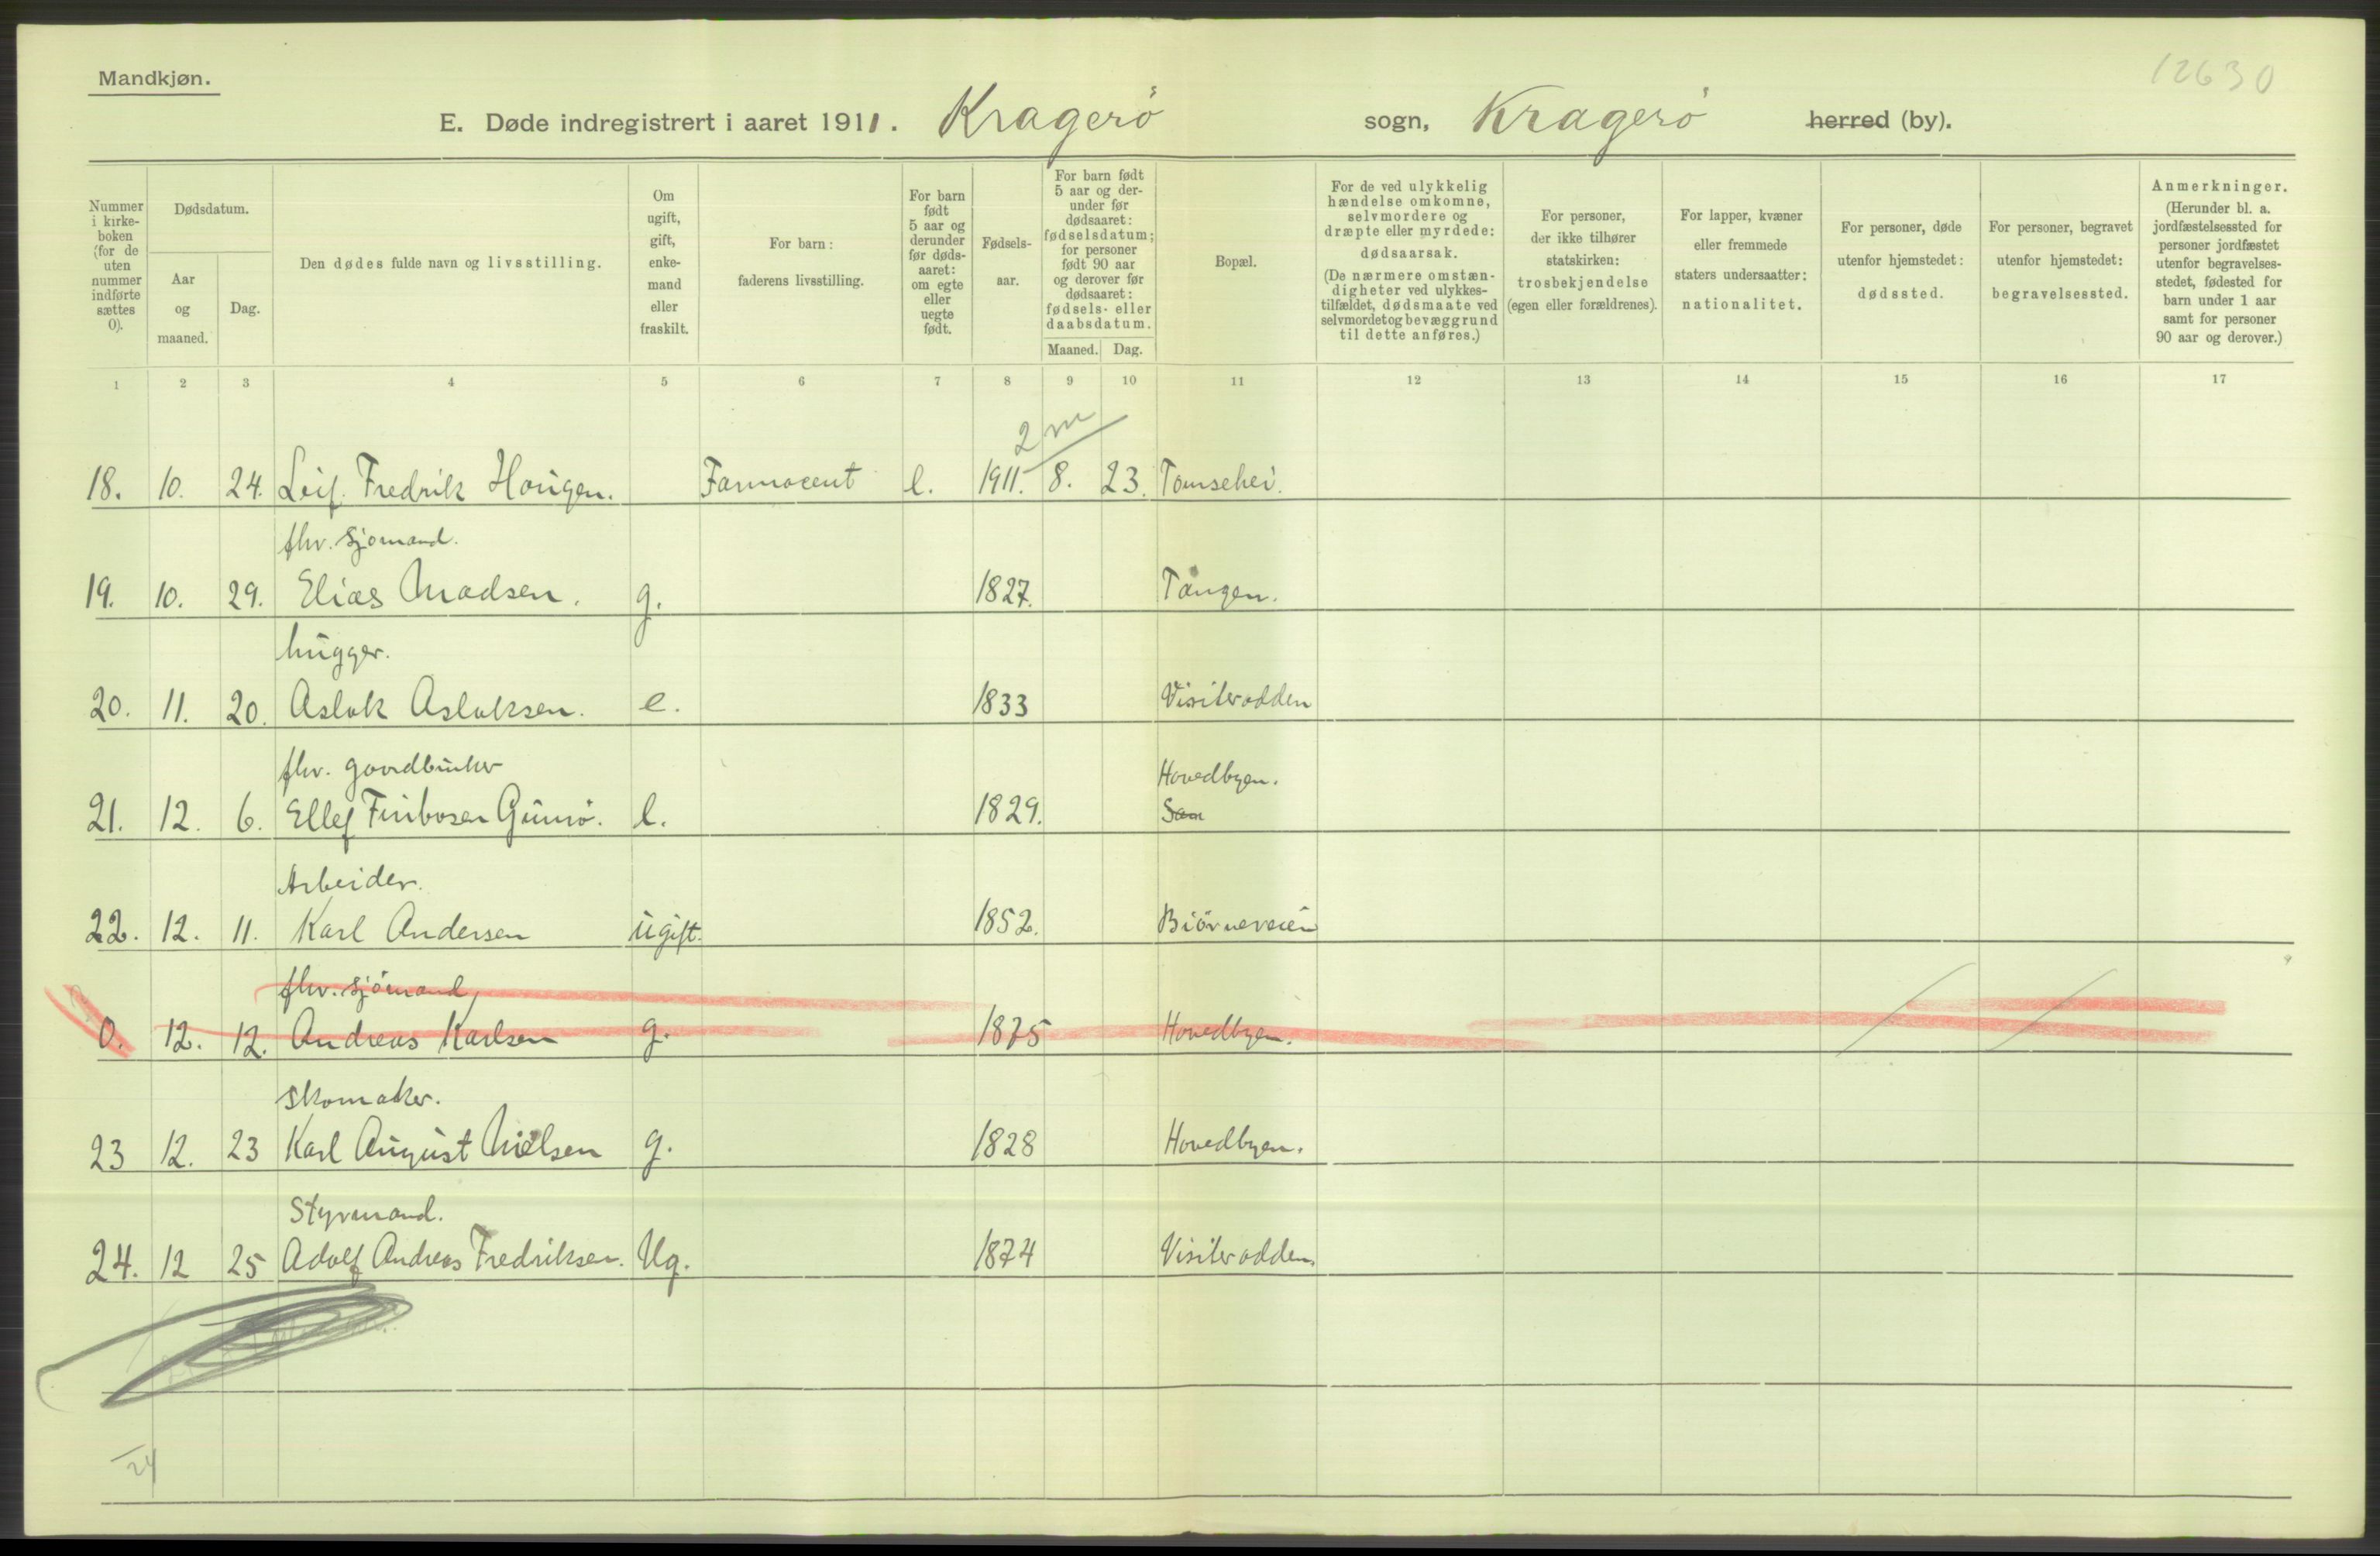 Mandkjøn.
12630
E. Døde indregistrert i aaret 1911. Kragerö sogn, Kragerö herred (by).
Nummer i kirke-boken (for de uten nummer indførte sættes 0).
Dødsdatum.
Aar og maaned.
Dag.
Den dødes fulde navn og livsstilling.
Om ugift, gift, enke-mand eller fraskilt.
For barn: faderens livsstilling.
For barn født 5 aar og derunder før døds-aaret: om egte eller uegte født.
Fødsels-aar.
For barn født 5 aar og der-under før dødsaaret: fødselsdatum; for personer født 90 aar og derover før dødsaaret: fødsels- eller daabsdatum.
Maaned. Dag.
Bopæl.
For de ved ulykkelig hændelse omkomne, selvmordere og dræpte eller myrdede: dødsaarsak. (De nærmere omstæn-digheter ved ulykkes-tilfældet, dødsmaate ved selvmord et og bevæggrund til dette anføres.)
For personer, der ikke tilhører statskirken: trosbekjendelse (egen eller forældrenes).
For lapper, kvæner eller fremmede staters undersaatter: nationalitet.
For personer, døde utenfor hjemstedet: dødssted.
For personer, begravet utenfor hjemstedet: begravelsessted.
Anmerkninger. (Herunder bl. a. jordfæstelsessted for personer jordfæstet utenfor begravelses-stedet, fødested for barn under 1 aar samt for personer 90 aar og derover.)
1 2 3 4 5 6 7 8 9 10 11 12 13 14 15 16 17
2 m
18. 10. 24. Leif Fredrik Hougen. Farmaceut e. 1911. 8. 23. Tomsehei.
fhv. Sjömand.
19. 10. 29. Elias Madsen. g. 1827. Tangen.
hugger.
20. 11. 20. Aslak Aslaksen. e. 1833 Visiterodden
fhv. gaardbruker Hovedbyen.
21. 12. 6. Ellef Gumö. e. 1829.
Arbeider.
22. 12. 11. Karl Andersen ugift. 1852. Biörneveien
fhv. sjömand,
0. 12. 12. Andreas Karlsen g. 1875 Hovedbyen.
Skomaker.
23 12. 23 Karl August Nielsen g. 1828 Hovedbyen.
Styrmand.
24. 12 25 Adolf Andreas Fredriksen. Ug. 1874 Visiterodden.
24